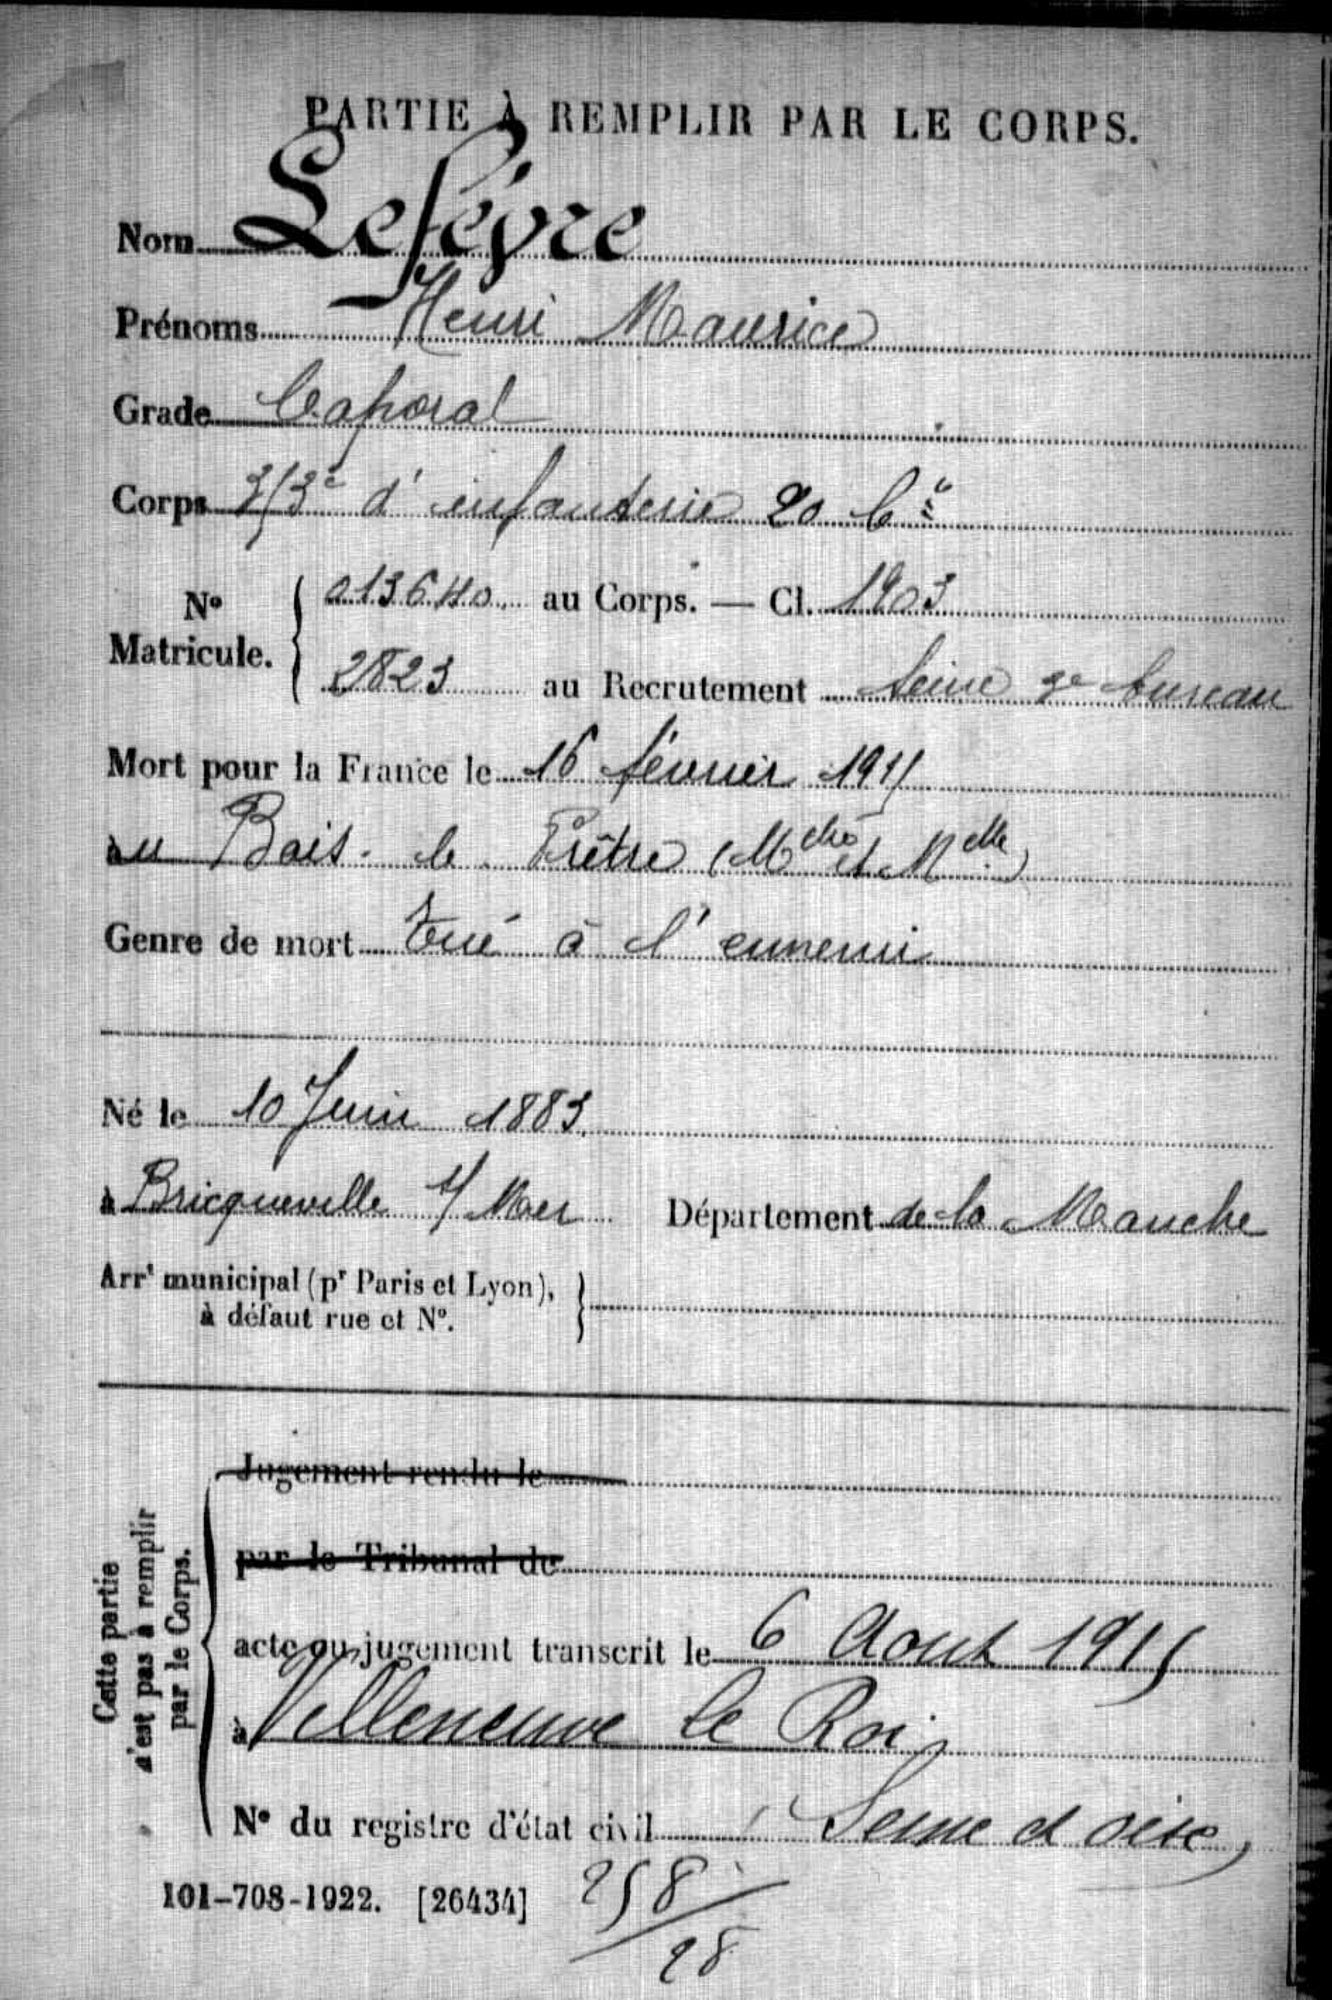 PARTIE À REMPLIR PAR LE CORPS.
Nom Lefèvre
Prénoms Henri Maurice
Grade Caporal
Corps 353e d'infanterie 20 Cie
No Matricule. 013640 au Corps. — Cl. 1903
2823 au Recrutement Seine 3e bureau
Mort pour la France le 16 février 1915
au Bois-le-Prêtre (Mthe et Mlle)
Genre de mort Tué à l'ennemi
Né le 10 Juin 1883
à Bricqueville s/ Mer Département de la Manche
Arrt municipal (pr Paris et Lyon),
à défaut rue et No.
Cette partie
n'est pas à remplir
par le Corps.
Jugement rendu le
par le Tribunal de
acte ou jugement transcrit le 6 Aout 1915
à Villeneuve le Roi,
No du registre d'état civil Seine et Oise,
101-708-1922. [26434]
258/28